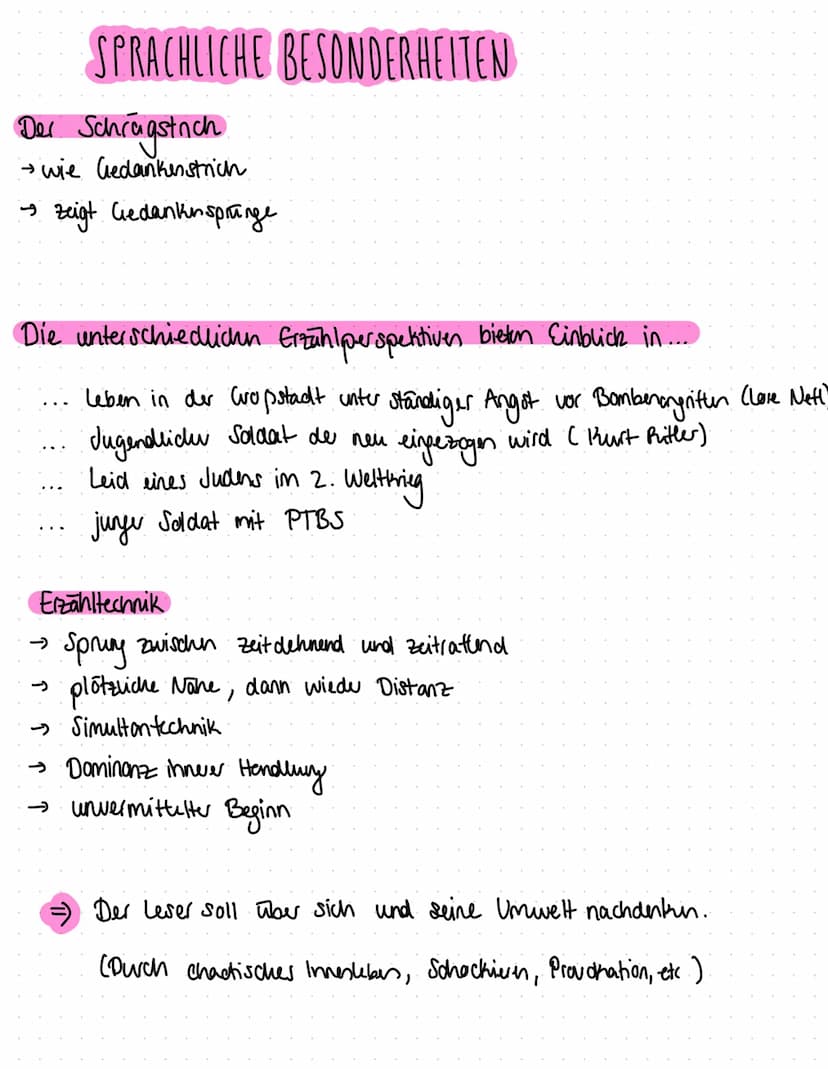 SPRACHLICHE BESONDERHEITEN
Der Schrägstrich
→ wie Gedankenstrich
→ zeigt Gedankensprünge
Die unterschiedlichen Erzählperspektiven bieten Einblick in...
... Leben in der Großstadt unter ständiger Angst vor Bombenangriffen (Lore Neff)
... Jugendlicher Soldat der neu eingezogen wird (Kurt Ritler)
... Leid eines Judens im 2. Weltkrieg
... junger Soldat mit PTBS
Erzähltechnik
→ Sprung zwischen zeitdehnend und zeitraffend
→ plötzliche Nähe, dann wieder Distanz
→ Simultantechnik
→ Dominanz innerer Handlung
→ unvermittelter Beginn
⇒ Der Leser soll über sich und seine Umwelt nachdenken.
(Durch chaotisches Innenleben, Schockieren, Provokation, etc)